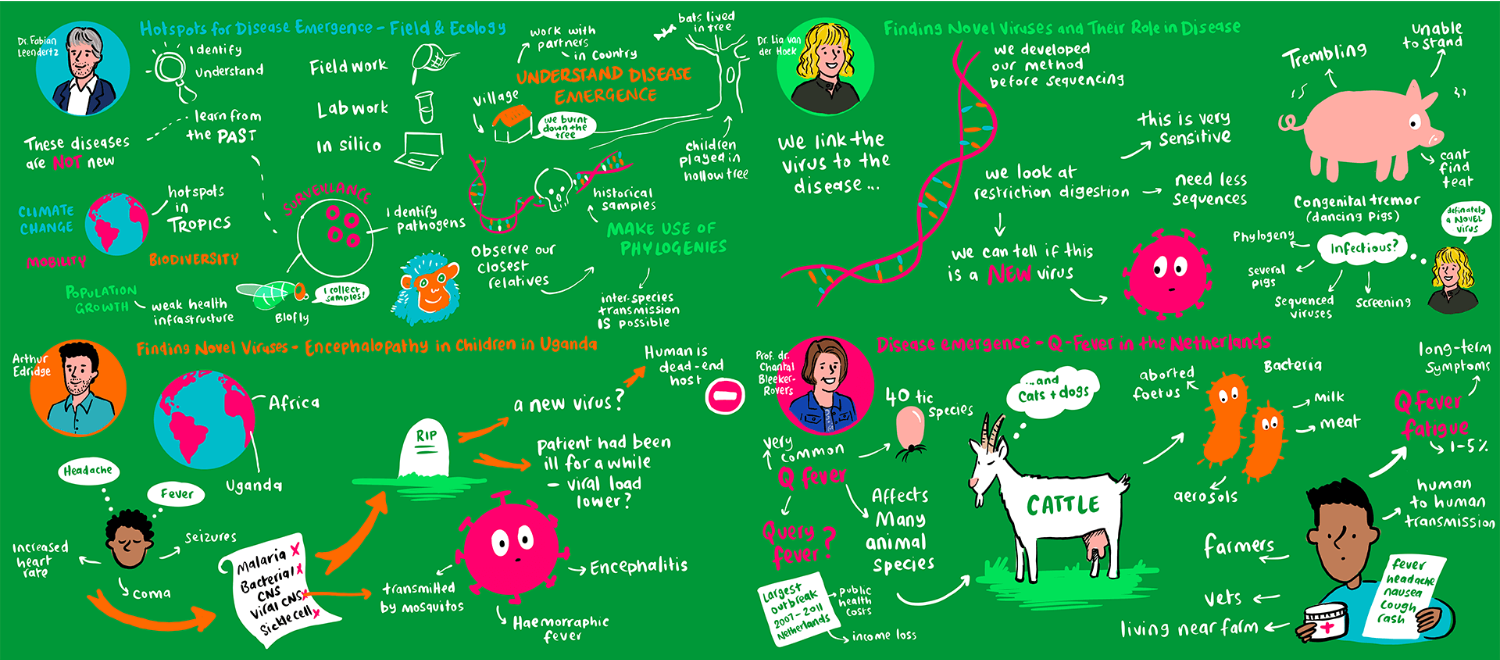 Dr. Fabian
Leendertz
Hotspots for Disease Emergence - Field & Ecology
Identify
Understand
learn from
the PAST
These diseases
are NOT new
CLIMATE
CHANGE
hotspots
in
TROPICS
MOBILITY
BIODIVERSITY
POPULATION
GROWTH
weak health
infrastructure
Field work
Lab work
In silico
SURVEILLANCE
Identify
pathogens
Biofly
I collect
samples!
work with
partners
in Country
UNDERSTAND DISEASE
EMERGENCE
Village
we burnt
down the
tree
bats lived
in tree
children
played in
hollow tree
historical
samples
MAKE USE OF
PHYLOGENIES
Observe our
closest
relatives
inter-species
transmission
IS possible
Dr. Lia van
der Hoek
Finding Novel Viruses and Their Role in Disease
we developed
our method
before sequencing
we link the
virus to the
disease ...
this is very
sensitive
we look at
restriction digestion
need less
sequences
we can tell if this
is a NEW virus
Trembling
unable
to stand
cant
find
teat
Congenital tremor
(dancing pigs)
definately
a NOVEL
virus
Infectious?
Phylogeny
several
pigs
Sequenced
viruses
Screening
Arthur
Edridge
Finding Novel Viruses - Encephalopathy in Children in Uganda
Africa
Uganda
Headache
Fever
Increased
heart
rate
Seizures
coma
Malaria x
Bacterial x
CNS
Viral CNS x
Sicklecell x
RIP
a new virus?
Human is
dead-end
host
Patient had been
ill for a while
- viral load
lower?
transmitted
by mosquitos
Encephalitis
Haemorraphic
fever
Prof. dr.
Chantal
Bleeker-
Rovers
Disease emergence - Q-Fever in the Netherlands
40 tic
species
very
common
Q fever
Query
fever?
Affects
Many
animal
species
Largest
outbreak
2007-2011
Netherlands
public
health
costs
income loss
...and
cats + dogs
CATTLE
aborted
foetus
Bacteria
Milk
meat
aerosols
long-term
symptoms
Q Fever
fatigue
1-5%
human
to human
transmission
farmers
vets
living near farm
fever
headache
nausea
cough
rash